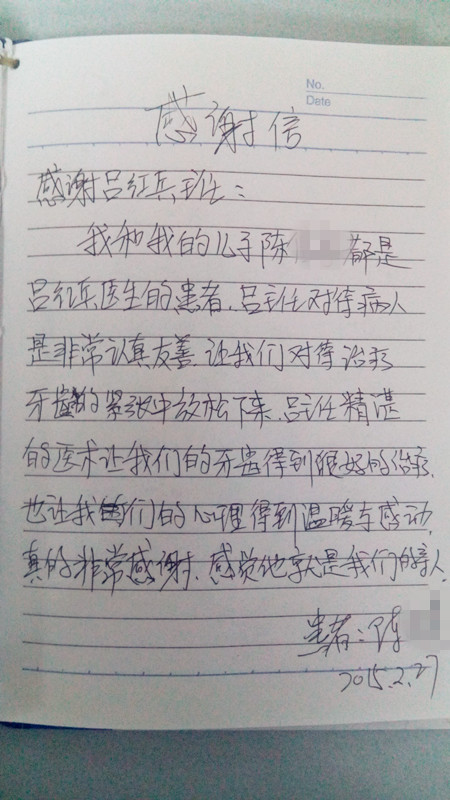 No.
Date
感谢信
感谢吕红兵主任：
我和我的儿子陈 都是
吕红兵医生的患者，吕主任对待病人
是非常认真友善，让我们对待治疗
牙齿的紧张中放松下来，吕主任精湛
的医术让我们的牙齿得到很好的治疗，
也让我们的心理得到温暖与感动，
真的非常感谢，感觉他就是我们的亲人，
患者：陈
2015.2.27